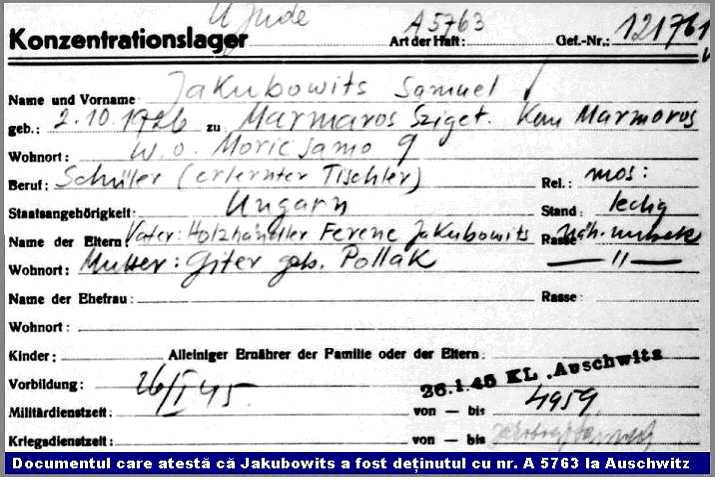 U Jude
Konzentrationslager Art der Haft: A 5763 Gef.-Nr.: 121761
Name und Vorname Jakubowits Samuel
geb.: 2.10.1926 zu Marmaros Sziget. Kom Marmoros
Wohnort: w.o. Moric 9
Beruf: Schüler (erlernter Tischler) Rel.: mos:
Staatsangehörigkeit: Ungarn Stand: ledig
Name der Eltern Vater: Holzhändler Ferenc Jakubowits Rasse
Wohnort: Mutter: Giter geb. Pollak — " —
Name der Ehefrau: Rasse:
Wohnort:
Kinder: Alleiniger Ernährer der Familie oder der Eltern:
Vorbildung: 26/I 45 26.1.45 KL. Auschwitz
Militärdienstzeit: von — bis 4959
Kriegsdienstzeit: von — bis
Documentul care atestă că Jakubowits a fost deținutul cu nr. A 5763 la Auschwitz